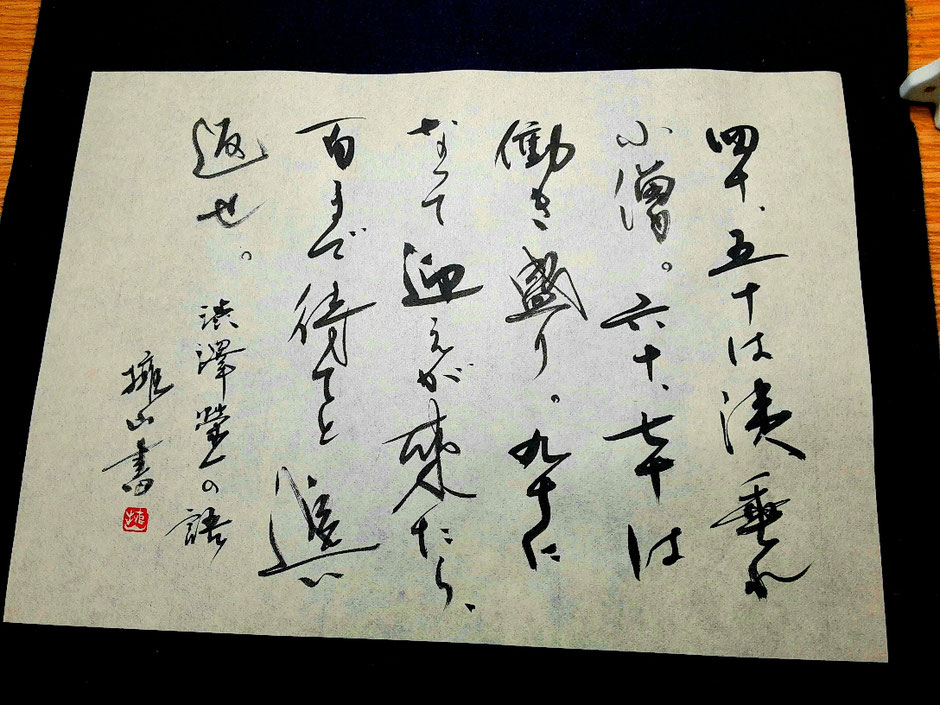 四十、五十は洟垂れ
小僧。六十、七十は
働き盛り。九十に
なって迎えが来たら、
百まで待てと追い
返せ。
渋澤栄一の語
擁山書